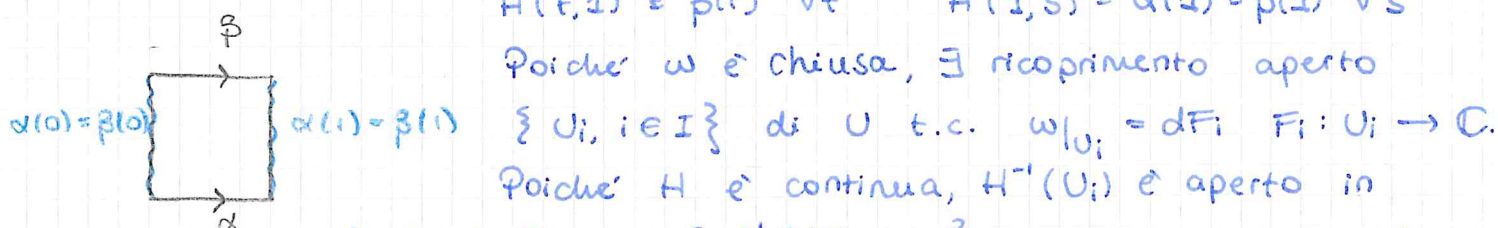 H(t,1) = β(t) ∀t H(1,s) = α(1) = β(1) ∀s
β
Poiché ω è chiusa, ∃ ricoprimento aperto
α(0) = β(0) α(1) = β(1) { Ui, i ∈ I } di U t.c. ω|Ui = dFi Fi : Ui → ℂ.
Poiché H è continua, H⁻¹(Ui) è aperto in
α